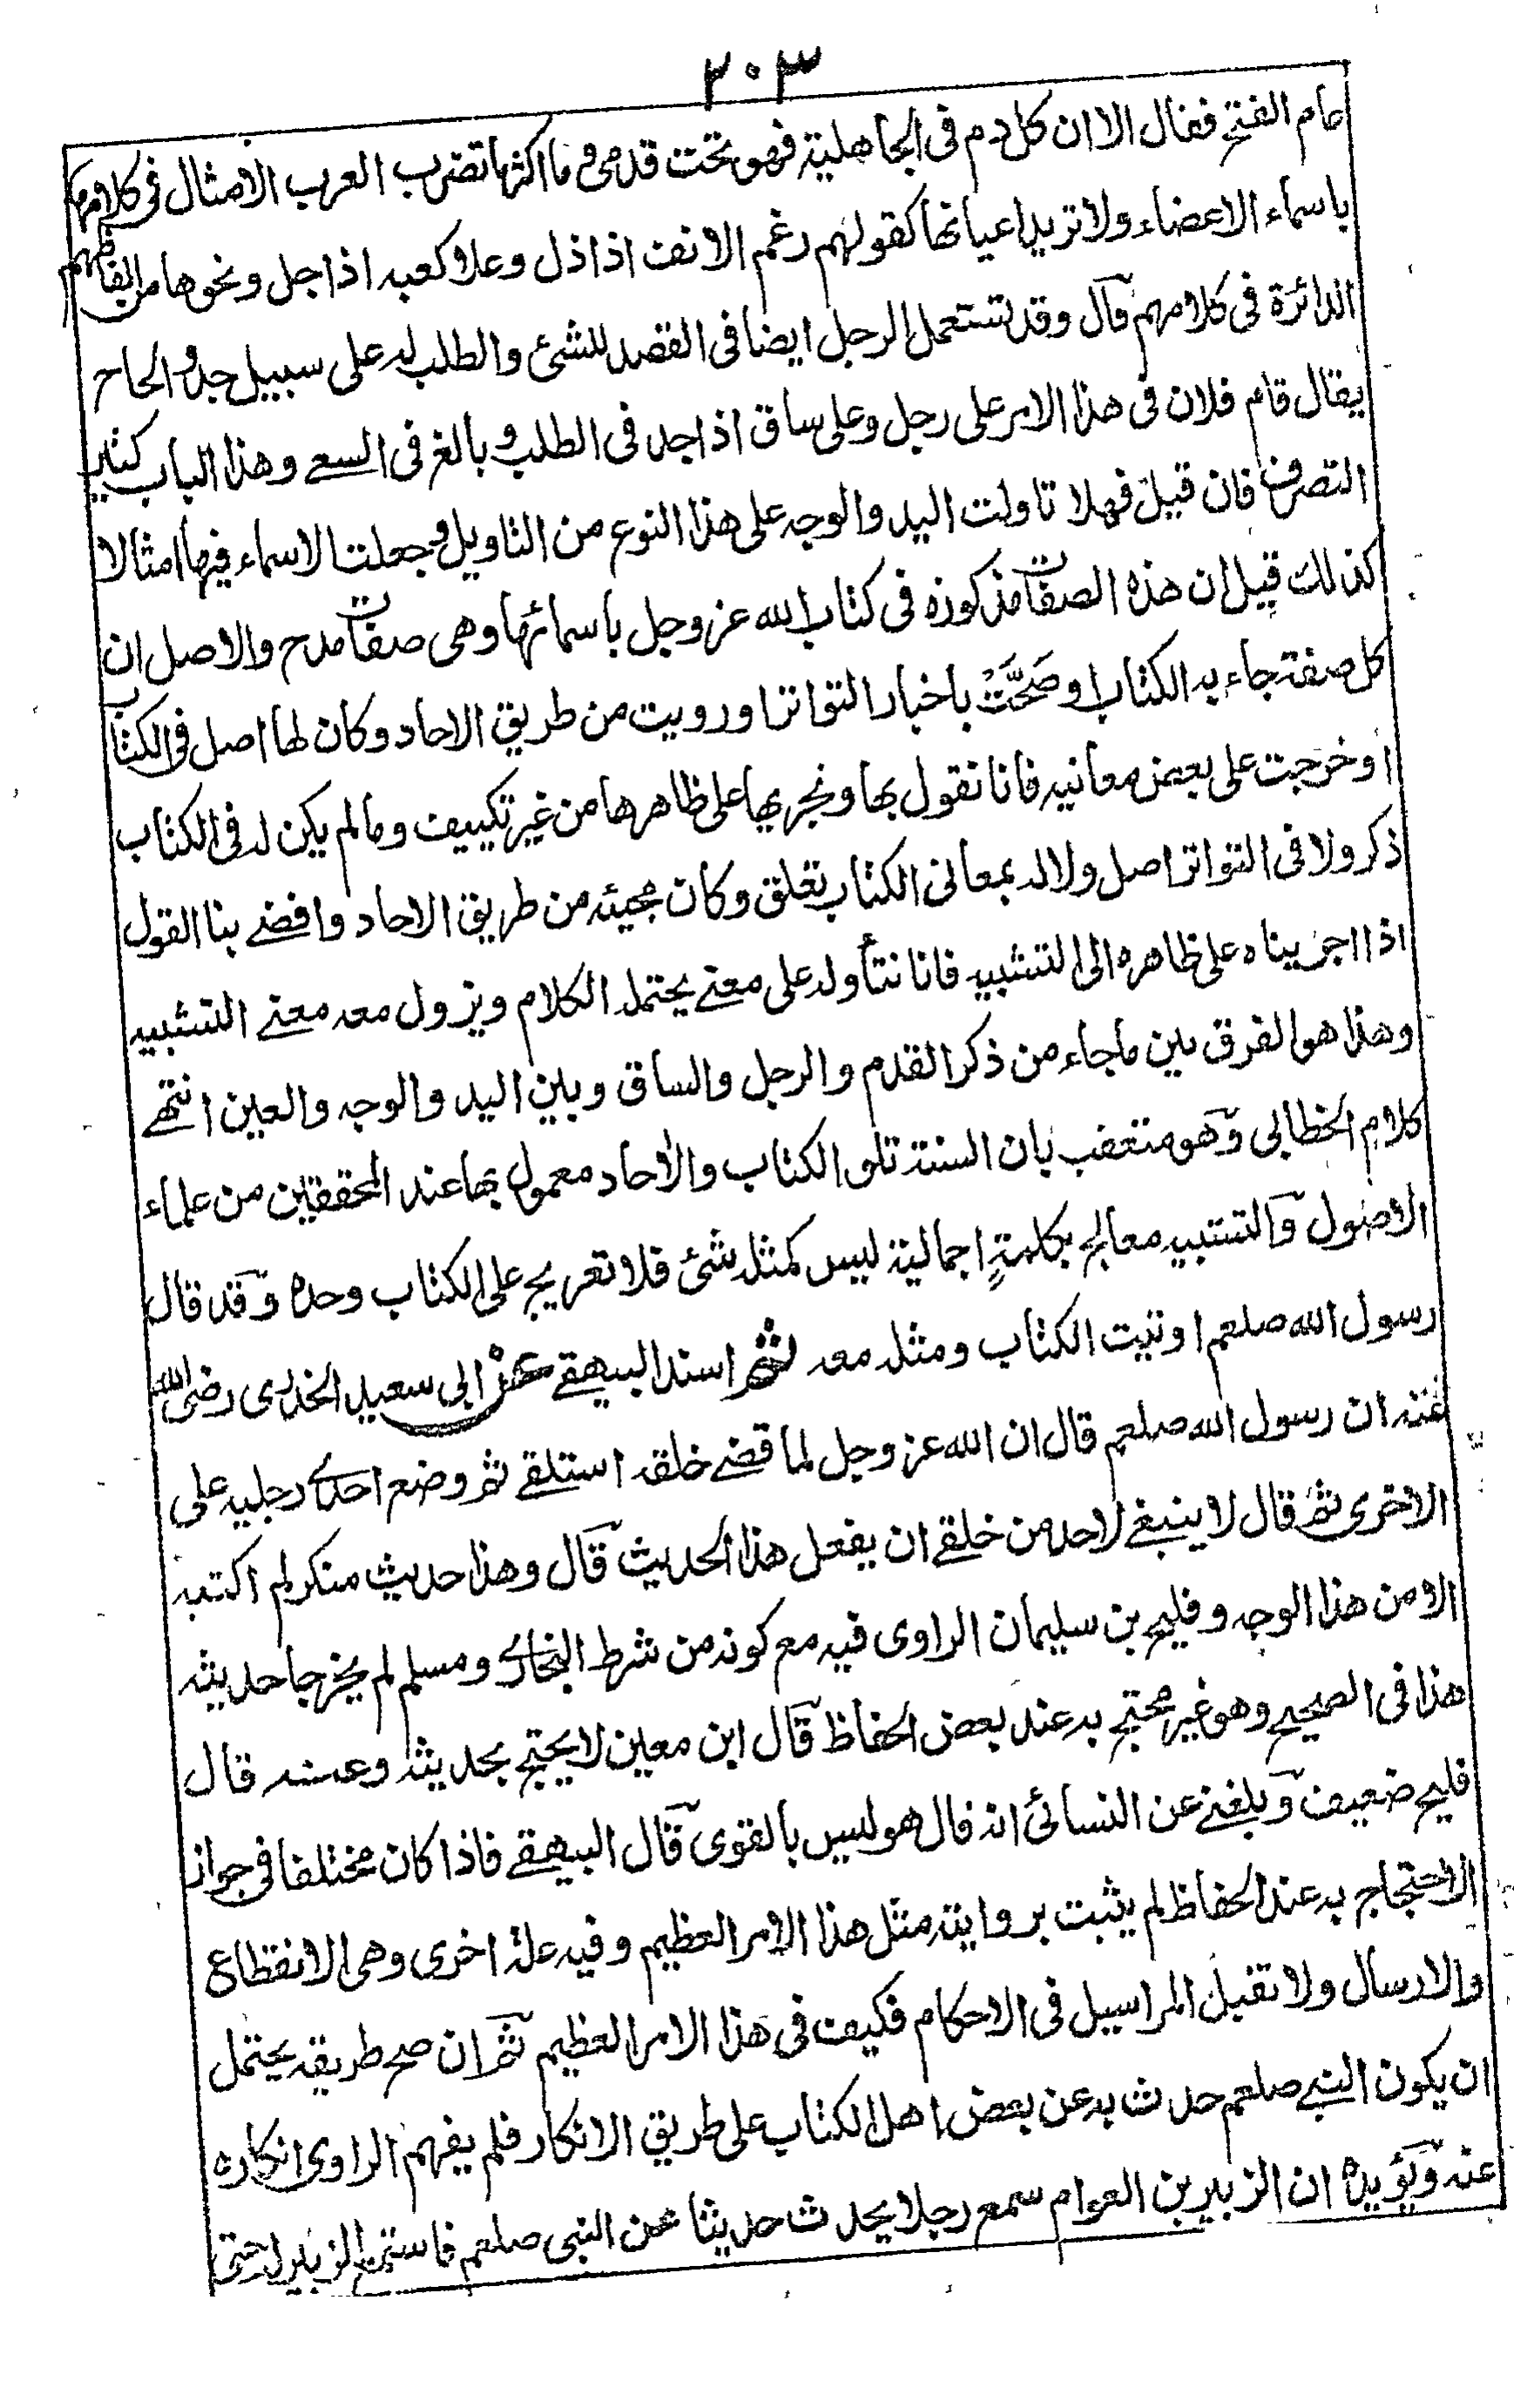 ٢٠٣
عام الفتح فقال الا ان كل دم فى الجاهلية فهو تحت قدمى و ما اكثر ما تضرب العرب الامثال فى كلامها
باسماء الاعضاء ولا تريد اعيانها كقولهم رغم الانف اذا ذل وعلا كعبه اذا جل ونحوها من الفاظهم
الدائرة فى كلامهم قال وقد تستعمل الرجل ايضا فى القصد للشئ والطلب له على سبيل جد والحاح
يقال قام فلان فى هذا الامر على رجل وعلى ساق اذا جد فى الطلب و بالغ فى السعے وهذا الباب كثير
التصرف فان قيل فهلا تاولت اليد والوجه على هذا النوع من التاويل وجعلت الاسماء فيها امثالا
كذلك قيل ان هذه الصفات مذكورة فى كتاب الله عز وجل باسمائها وهى صفات مدح والاصل ان
كل صفة جاء به الكتاب او صَحَّتْ باخبار التواتر او رويت من طريق الاحاد وكان لها اصل فى الكتاب
او خرجت على بعض معانيه فانا نقول بها ونجريها على ظاهرها من غير تكييف وما لم يكن له فى الكتاب
ذكر ولا فى التواتر اصل ولا له بمعانى الكتاب تعلق وكان مجيئه من طريق الاحاد وافضے بنا القول
اذا اجريناه على ظاهره الى التشبيه فانا نتأوله على معنے يحتمله الكلام ويزول معه معنے التشبيه
وهذا هو الفرق بين ما جاء من ذكر القدم والرجل والساق وبين اليد والوجه والعين انتهے
كلام الخطابى وهو متعقب بان السنة تلو الكتاب والاحاد معمول بها عند المحققين من علماء
الاصول والتشبيه معالج بكلمةٍ اجمالية ليس كمثله شئ فلا تعريج على الكتاب وحده وقد قال
رسول الله صلعم اوتيت الكتاب ومثله معه ثم اسند البيهقے عن ابى سعيد الخدرى رضى الله
عنه ان رسول الله صلعم قال ان الله عز وجل لما قضے خلقه استلقے ثم وضع احدے رجليه على
الاخرى ثم قال لا ينبغے لاحد من خلقے ان يفعل هذا الحديث قال وهذا حديث منكر لم اكتبه
الا من هذا الوجه و فليح بن سليمان الراوى فيه مع كونه من شرط البخارے ومسلم لم يخرجا حديثه
هذا فى الصحيح وهو غير محتج به عند بعض الحفاظ قال ابن معين لا يحتج بحديثه وعنه قال
فليح ضعيف وبلغنے عن النسائى انه قال هو ليس بالقوى قال البيهقے فاذا كان مختلفا فى جواز
الاحتجاج به عند الحفاظ لم يثبت بروايته مثل هذا الامر العظيم وفيه علة اخرى وهى الانقطاع
والارسال ولا تقبل المراسيل فى الاحكام فكيف فى هذا الامر العظيم ثم ان صح طريقه يحتمل
ان يكون النبے صلعم حدث به عن بعض اهل الكتاب على طريق الانكار فلم يفهم الراوى انكاره
عنه ويؤيده ان الزبير بن العوام سمع رجلا يحدث حديثا عن النبى صلعم فاستمع الزبير له حتى